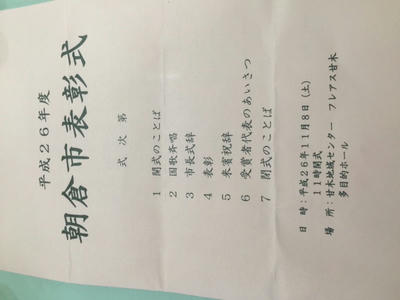 平成２６年度
朝倉市表彰式
式 次 第
１ 開式のことば
２ 国歌斉唱
３ 市長式辞
４ 表彰
５ 来賓祝辞
６ 受賞者代表のあいさつ
７ 閉式のことば
日 時：平成２６年１１月８日（土）
１１時開式
場 所：甘木地域センター フレアス甘木
多目的ホール